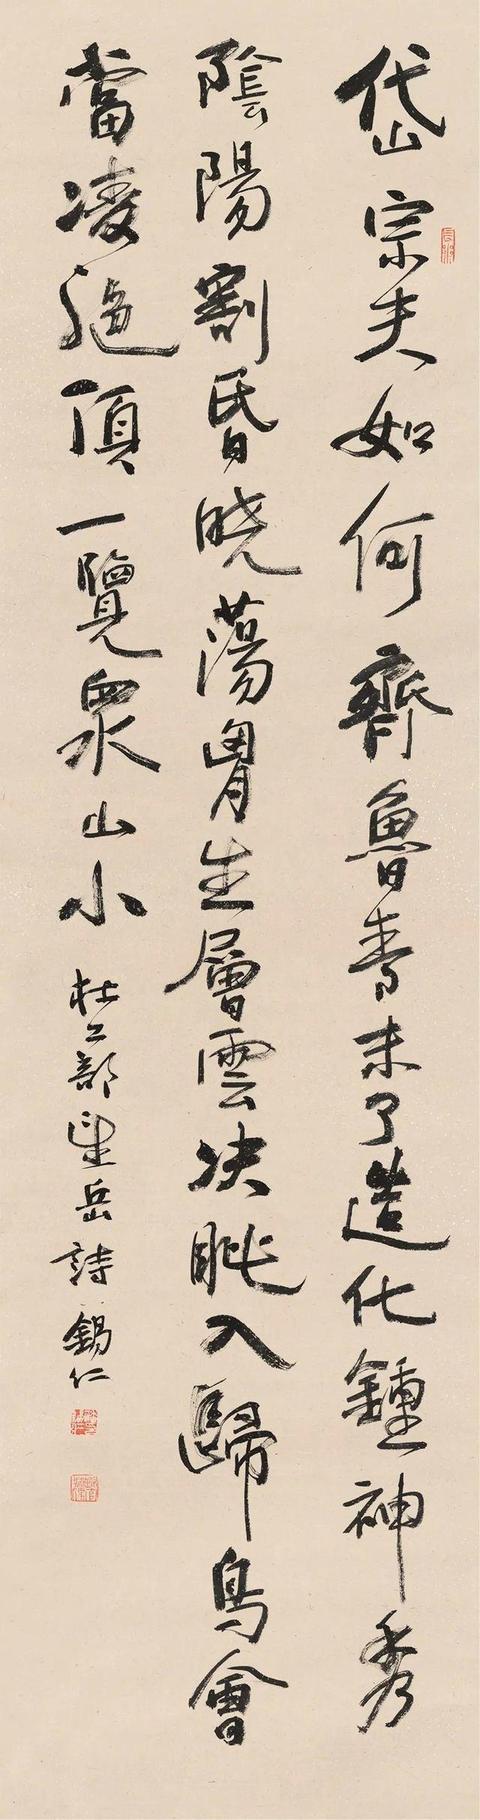 岱宗夫如何齊魯青未了造化鍾神秀
陰陽割昏晓蕩胷生層雲决眦入歸鳥會
當凌絶頂一覽衆山小 杜工部望岳詩 錫仁